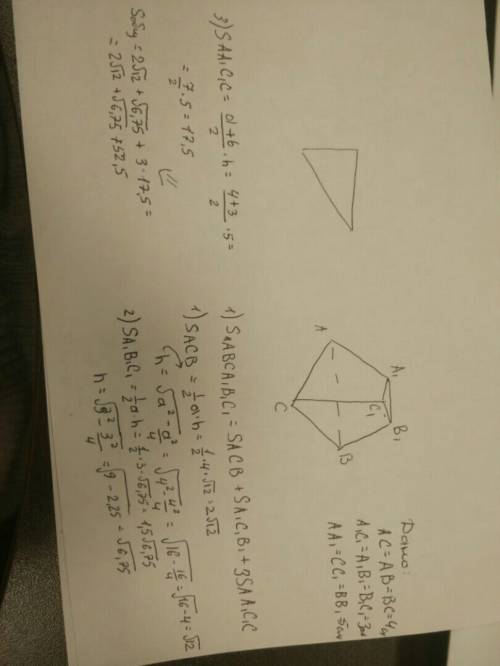 Дано:
AC = AB = BC = 4 см
A₁C₁ = A₁B₁ = B₁C₁ = 3 см
AA₁ = CC₁ = BB₁ = 5 см
A
A₁
C
C₁
B₁
B
1) SпABCA₁B₁C₁ = SACB + SA₁C₁B₁ + 3SAA₁C₁C
1) SACB = 1/2 a·h = 1/2 · 4 · √12 = 2√12
h = √(a² - a²/4) = √(4² - 4²/4) = √(16 - 16/4) = √(16 - 4) = √12
2) SA₁B₁C₁ = 1/2 a·h = 1/2 · 3 · √6,75 = 1,5√6,75
h = √(3² - 3²/4) = √(9 - 2,25) = √6,75
3) SAA₁C₁C = (a + b)/2 · h = (4 + 3)/2 · 5 =
= 7/2 · 5 = 17,5
= 2√12 + √6,75 + 3 · 17,5 =
= 2√12 + √6,75 + 52,5